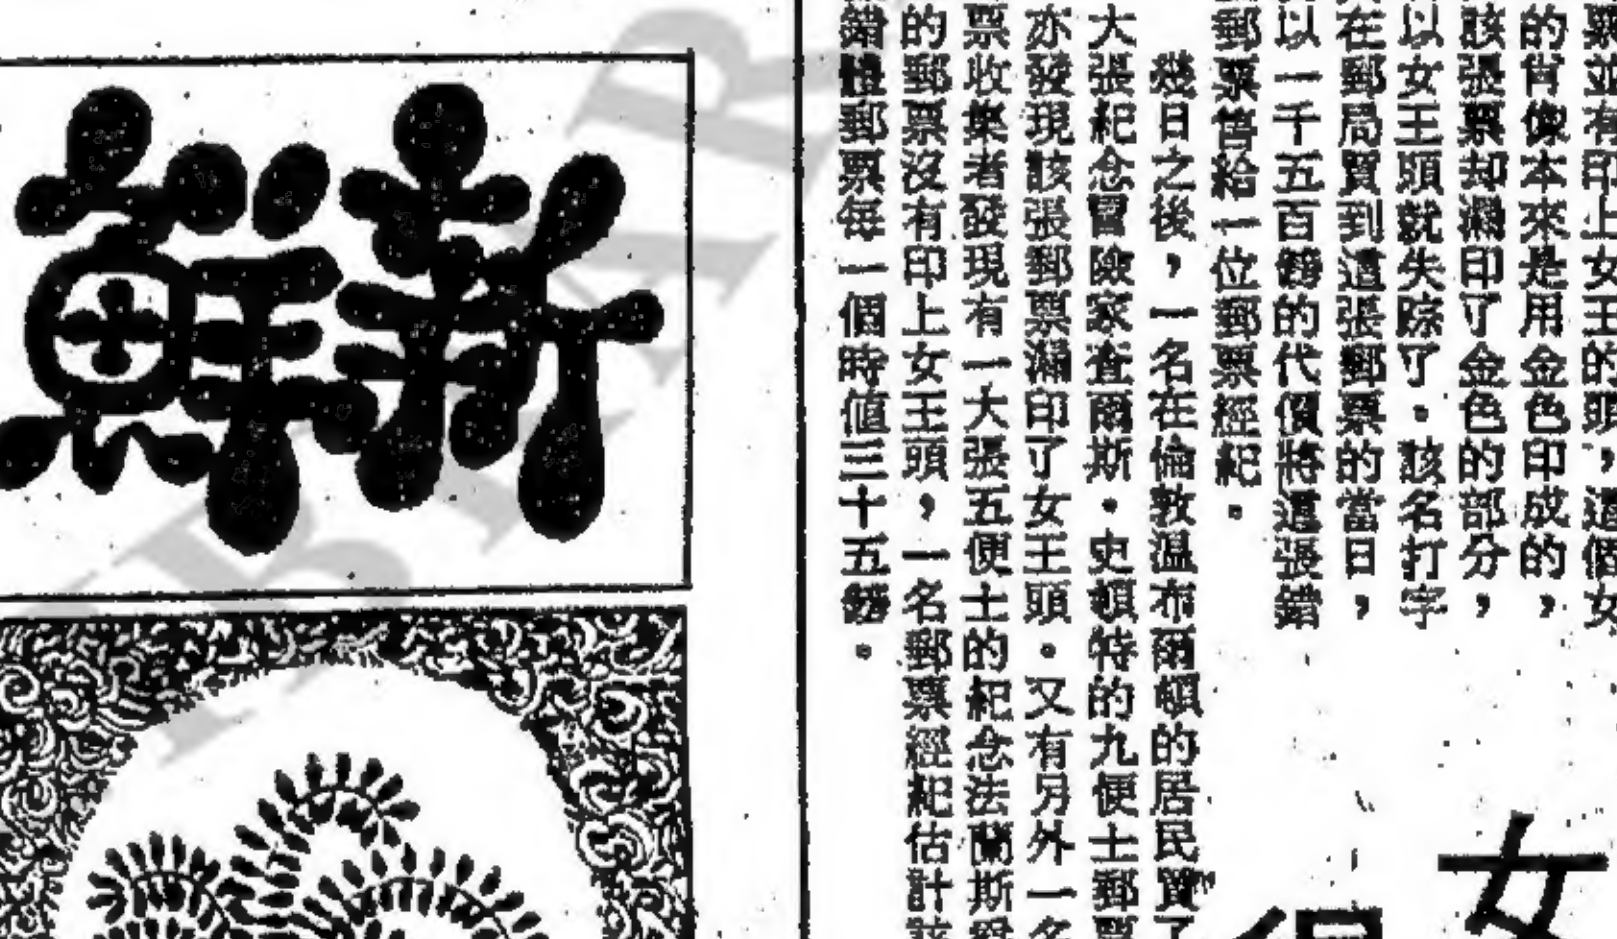 票並有印上女王的頭，這個女
的肖像本來是用金色印成的，
該張票却漏印了金色的部分，
以女王頭就失踪了。該名打字
在郵局買到這張郵票的當日，
以一千五百鎊的代價將這張錯
郵票售給一位郵票經紀。
幾日之後，一名在倫敦溫布爾頓的居民買了
大張紀念冒險家查爾斯·史頓特的九便士郵票
亦發現該張郵票漏印了女王頭。又有另外一名
票收集者發現有一大張五便士的紀念法蘭斯爵
的郵票沒有印上女王頭，一名郵票經紀估計該
錯體郵票每一個時值三十五鎊。
女
新鮮